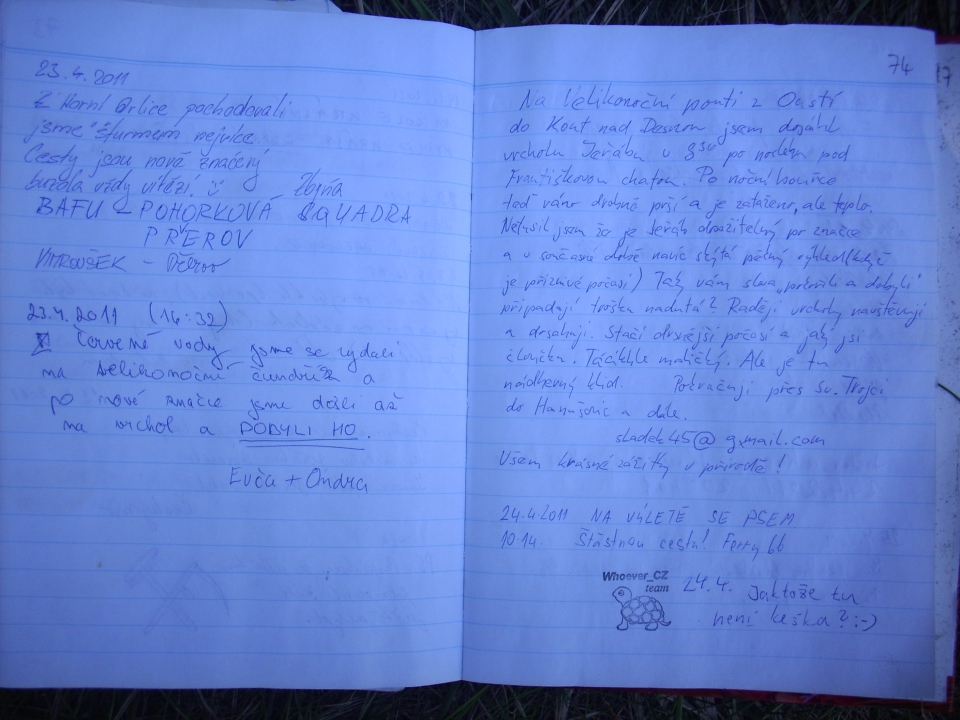 23.4.2011
Z Horní Orlice pochodovali
jsme šturmem nejvíce.
Cesty jsou nově značený
buzola vždy vítězí.
BAFU - POHORKOVÁ SQUADRA
PŘEROV
VITROUŠEK -
23.4.2011 (14:32)
Červené vody jsme se vydali
na velikonoční čundřík a
po nové značce jsme došli až
na vrchol a DOBYLI HO.
Evča + Ondra
74
17
Na Velikonoční pouti z Oustí
do Kout nad Desnou jsem dosáhl
vrcholu Jeřábu v 9 po noclehu pod
Františkovou chatou. Po noční bouřce
teď ráno drobně prší a je zataženo, ale teplo.
Netušil jsem že je Jeřáb dosažitelný po značce
a v současné době navíc skýtá pěkný výhled (když
je příznivé počasí) Též vám slova pokořili a dobyli
připadají trošku nadutá? Raději vrcholy navštěvuji
a dosahuji. Stačí drsnější počasí a jaký jsi
človíčku. Tácikhle maličký. Ale je tu
nádherný klid. Pokračuji přes Sv. Trojci
do Hanušovic a dále.
sladek45@gmail.com
Všem krásné zážitky v přírodě!
24.4.2011 NA VÝLETĚ SE PSEM
10.14. Šťastnou cestu! Ferry 66
Whoever_CZ
team
24.4. Jaktože tu
není keška? :-)